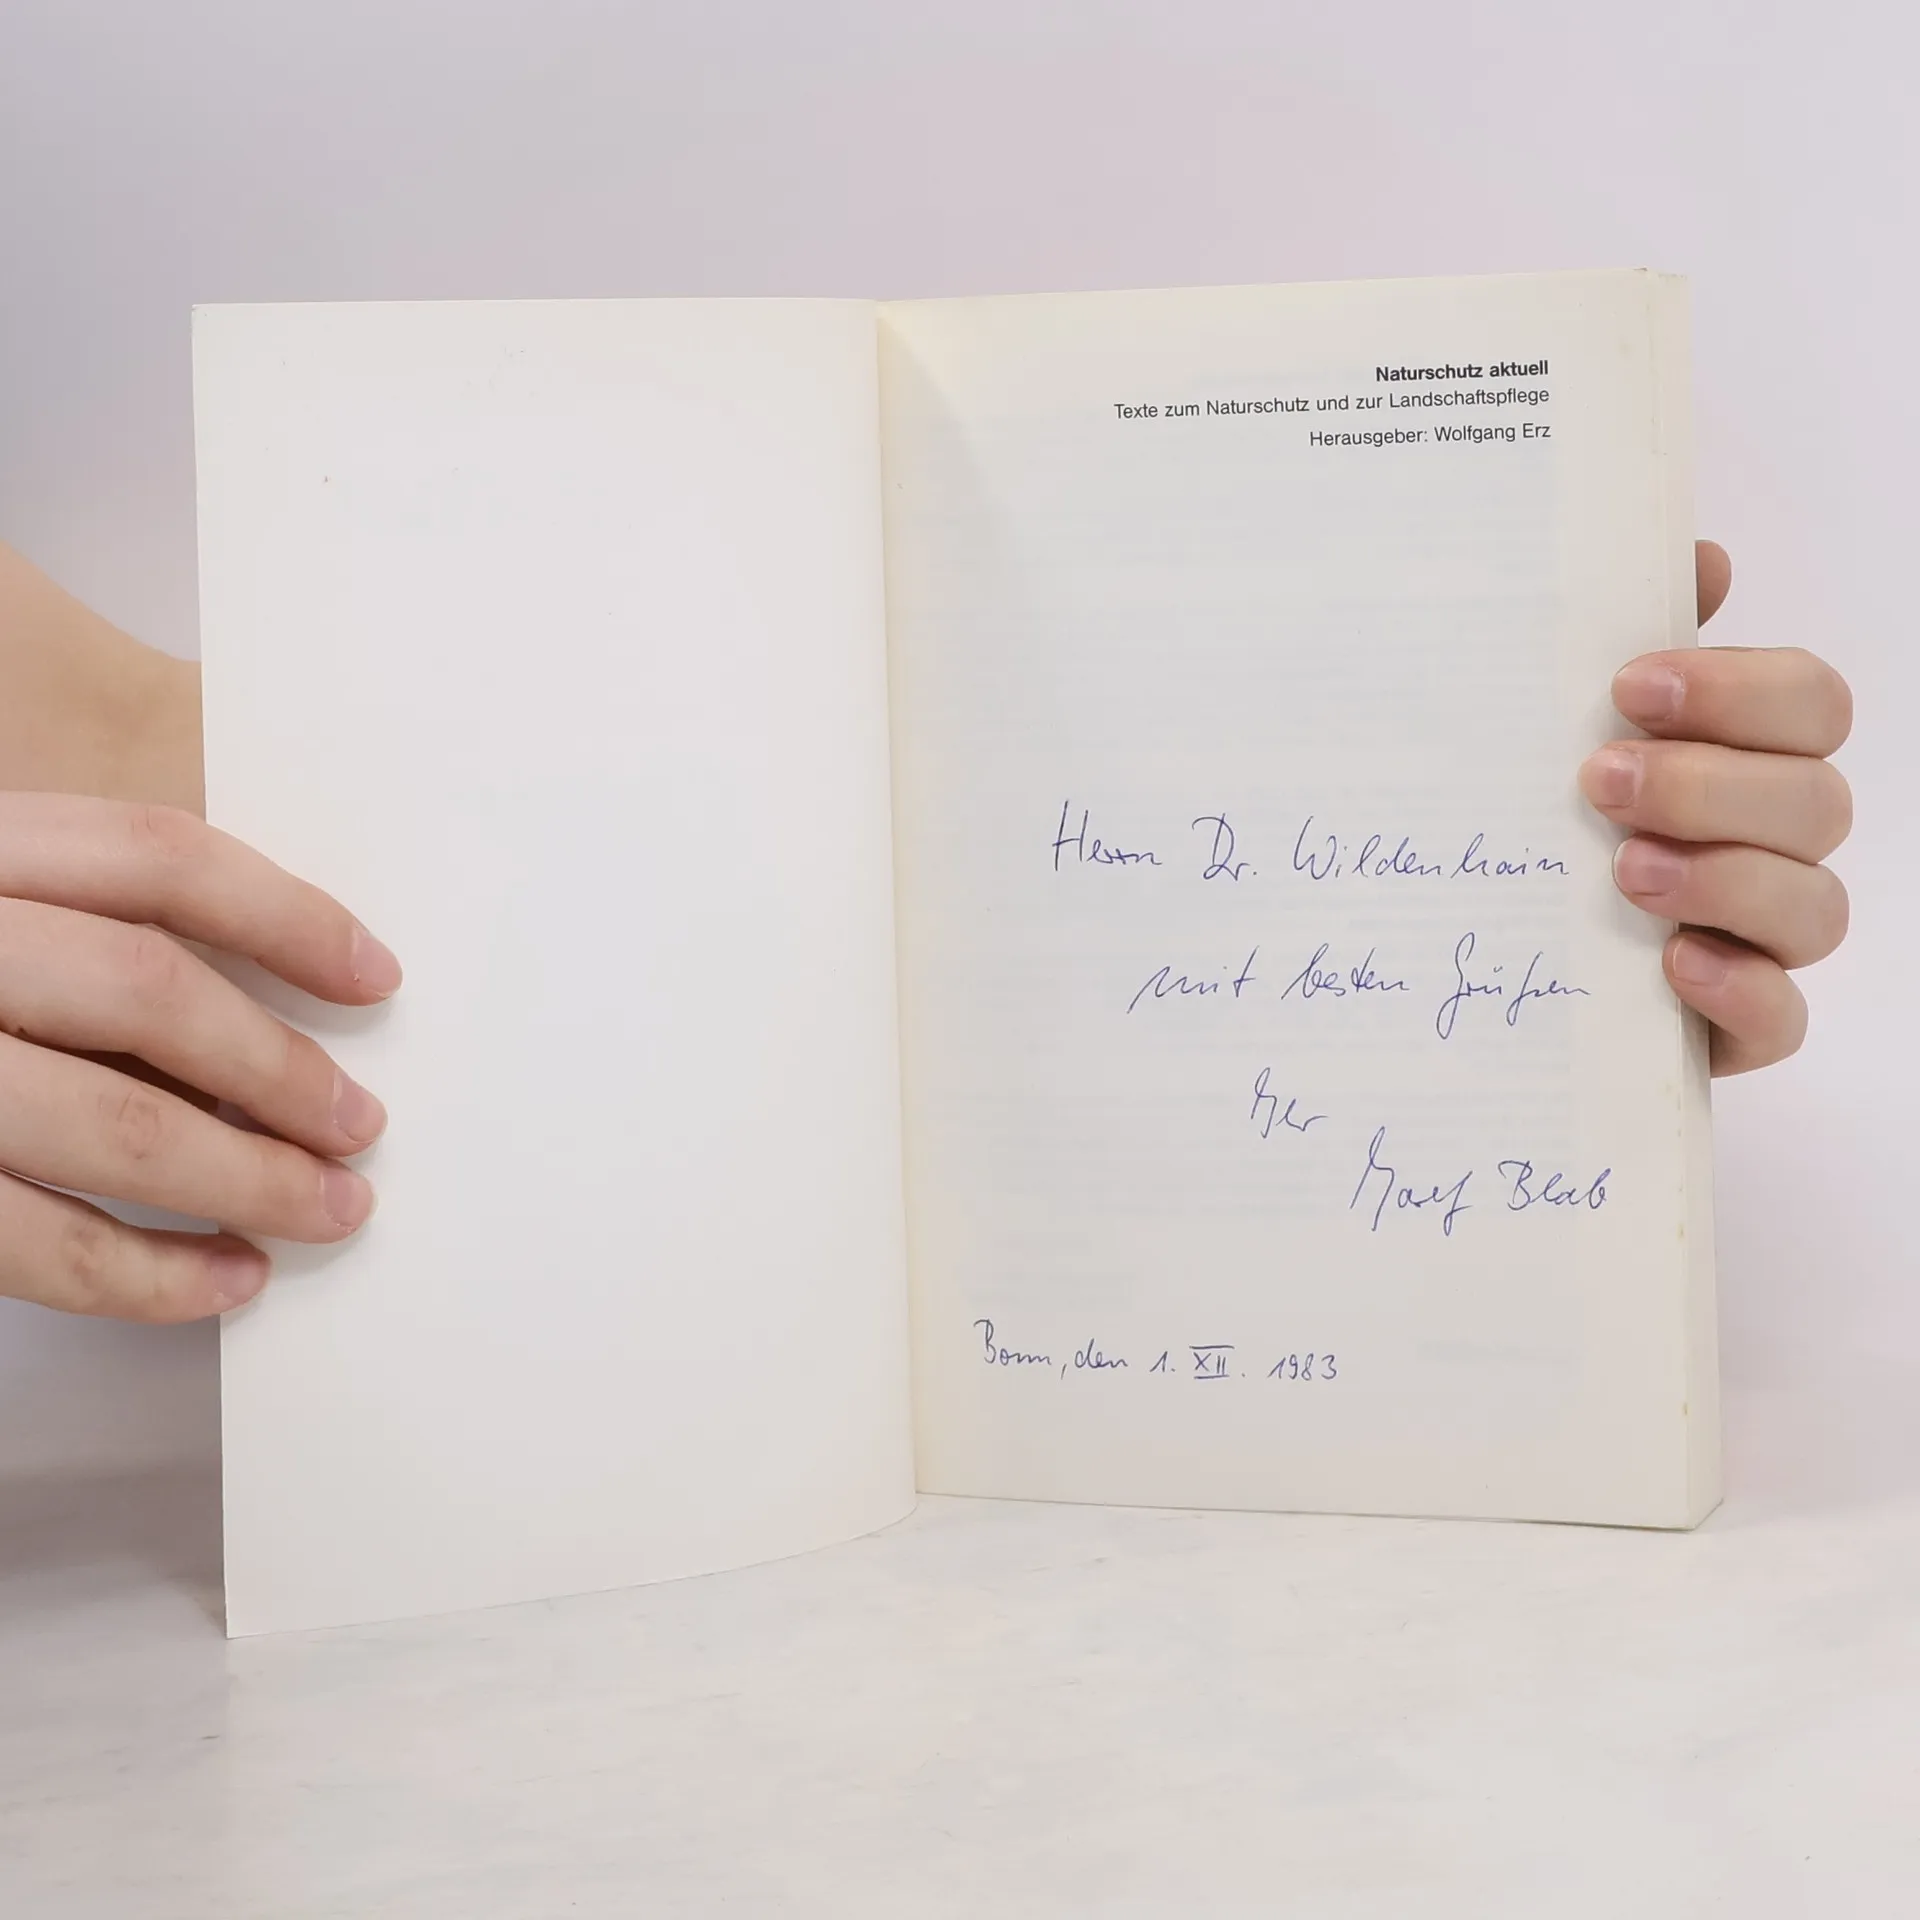 Naturschutz aktuell
Texte zum Naturschutz und zur Landschaftspflege
Herausgeber: Wolfgang Erz
Herrn Dr. Wildenhain
mit besten Grüßen
Ihr
Josef Blab
Bonn, den 1. XII. 1983